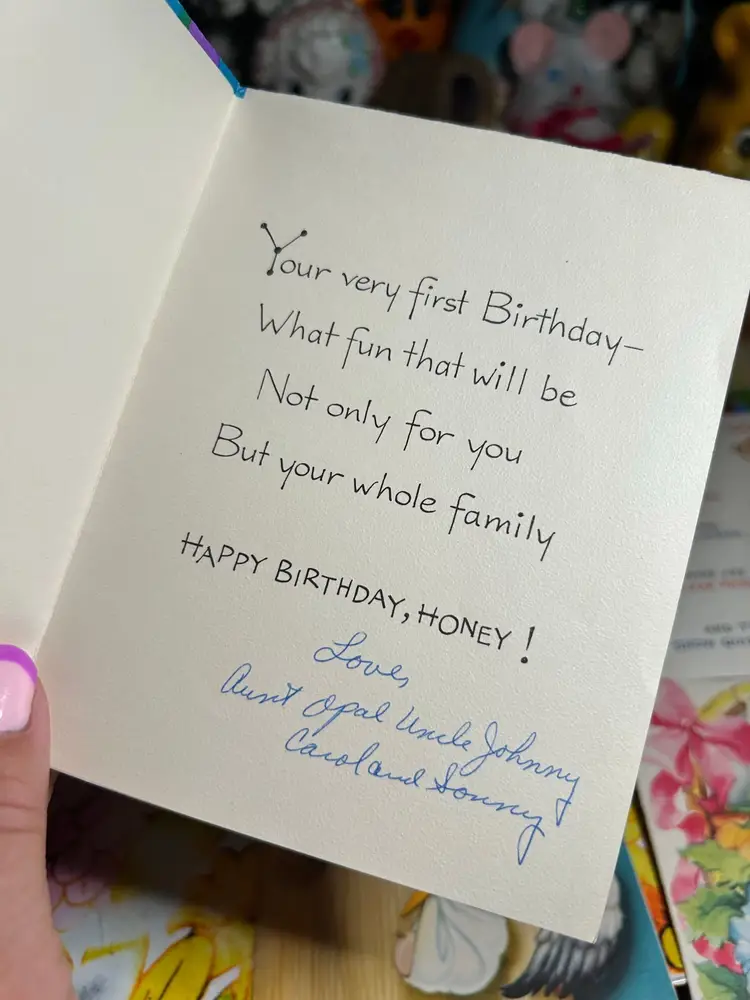 Your very first Birthday—
What fun that will be
Not only for you
But your whole family
HAPPY BIRTHDAY, HONEY!
Love,
Aunt Opal Uncle Johnny
Carol and Sonny